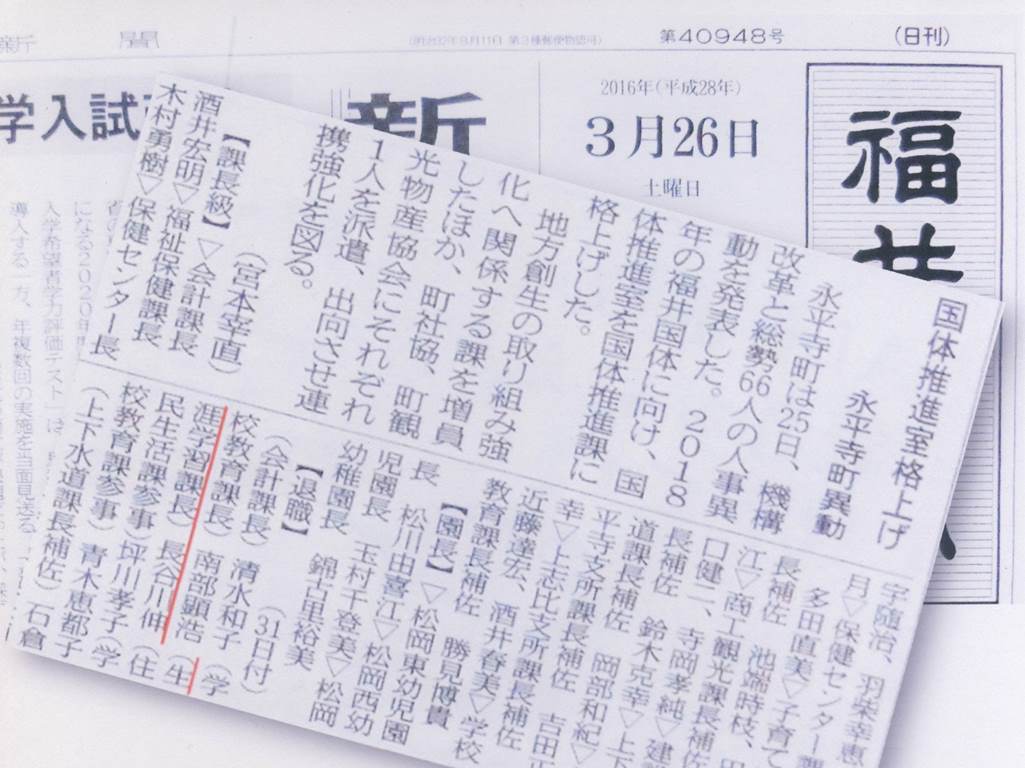 新聞
第40948号
(日刊)
2016年(平成28年)
3月26日
土曜日
福井
新
学入試
国体推進室格上げ
永平寺町異動
永平寺町は25日、機構
改革と総勢66人の人事異
動を発表した。2018
年の福井国体に向け、国
体推進室を国体推進課に
格上げした。
地方創生の取り組み強
化へ関係する課を増員
したほか、町社協、町観
光物産協会にそれぞれ
1人を派遣、出向させ連
携強化を図る。
(宮本宰直)
【課長級】▽会計課長
酒井宏明▽福祉保健課長
木村勇樹▽保健センター長
羽柴幸恵
月▽保健センター課
多田直美▽子育て
長補佐 池端時枝、田
江▽商工観光課長補佐
口健二、寺岡孝純▽建
長補佐 鈴木克幸▽上下
道課長補佐 岡部和紀▽
平寺支所課長補佐 吉田正
幸▽上志比支所課長補佐
近藤達宏、酒井春美▽学校
教育課長補佐 勝見博貴
【園長】▽松岡東幼児園
長 松川田喜江▽松岡西幼
児園長 玉村千登美▽松岡
幼稚園長 錦古里裕美
【退職】 (31日付)
(会計課長) 清水和子(学
校教育課長) 南部顕浩(生
涯学習課長) 長谷川伸(住
民生活課参事) 坪川孝子(学
校教育課参事) 青木恵都子
(上下水道課長補佐) 石倉
になる2020年
入学希望者学力評価テスト」は
導入する一方、年複数回の実施を当面見送る